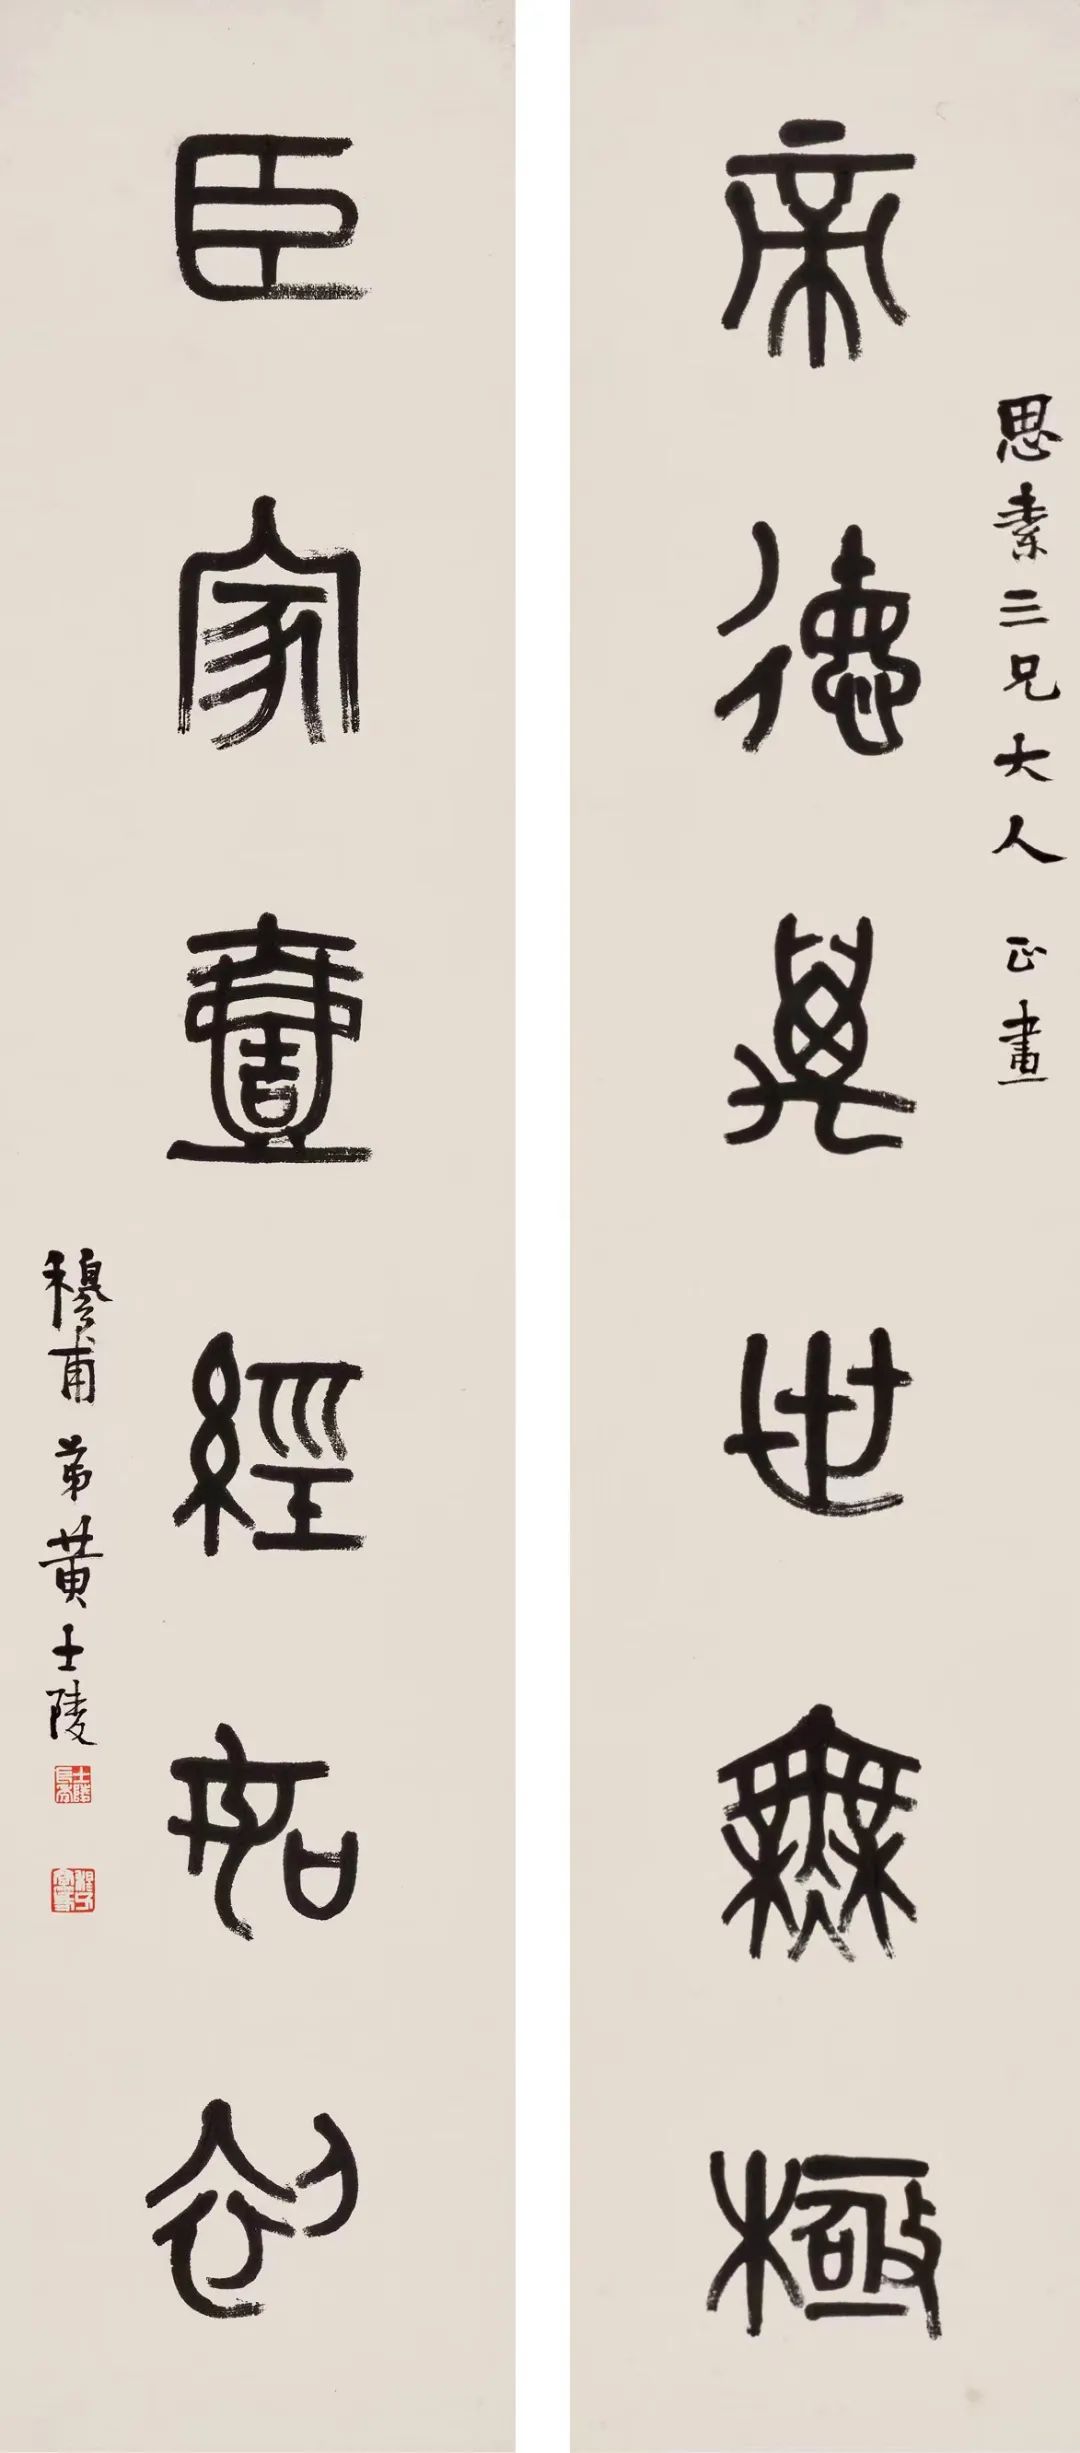 思素三兄大人 正畫
帝德萬世無極
臣家壹經如初
穆甫弟黃士陵